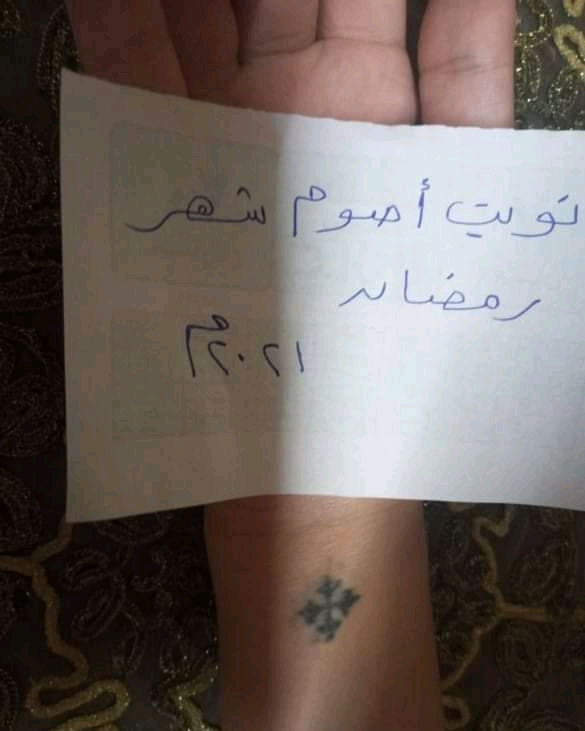 نويت أصوم شهر
رمضان
٢٠٢١م